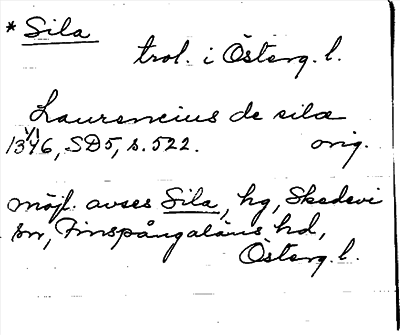 * Sila
trol. i Österg. l.
Laurencius de silæ
13 1/1 46, SD5, s. 522. orig.
möjl. avses Sila, hg, Skedevi
sn, Finspångaläns hd,
Österg. l.